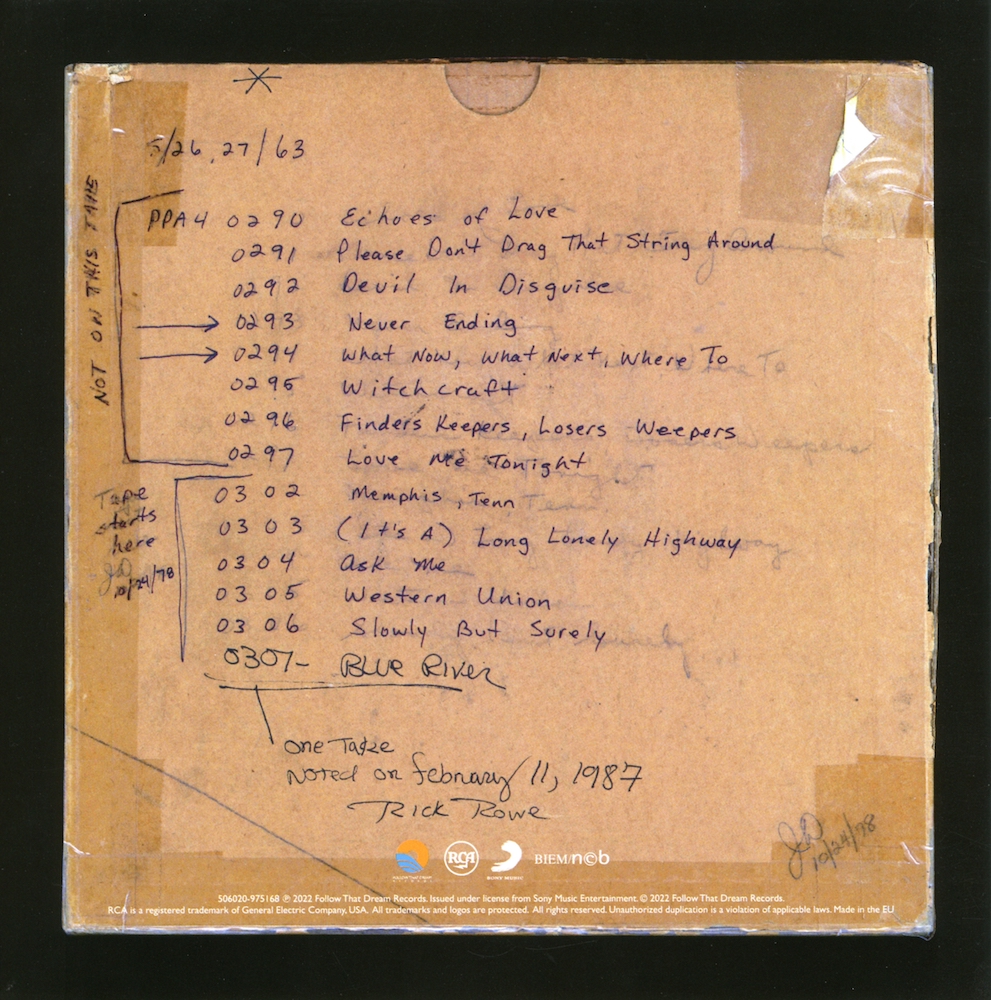 *
5/26, 27/63
NOT ON THIS TAPE
PPA4 0290 Echoes of Love
0291 Please Don't Drag That String Around
0292 Devil In Disguise
→ 0293 Never Ending
→ 0294 What Now, What Next, Where To
0295 Witchcraft
0296 Finders Keepers, Losers Weepers
0297 Love Me Tonight
Tape
starts
here
JD
10/24/78
0302 Memphis, Tenn
0303 (It's A) Long Lonely Highway
0304 Ask Me
0305 Western Union
0306 Slowly But Surely
0307- BLUE RIVER
one Take
Noted on february 11, 1987
Rick Rowe
JD
10/24/78
RCA
SONY MUSIC
BIEM/n©b
506020-975168 ℗ 2022 Follow That Dream Records. Issued under license from Sony Music Entertainment. © 2022 Follow That Dream Records.
RCA is a registered trademark of General Electric Company, USA. All trademarks and logos are protected. All rights reserved. Unauthorized duplication is a violation of applicable laws. Made in the EU